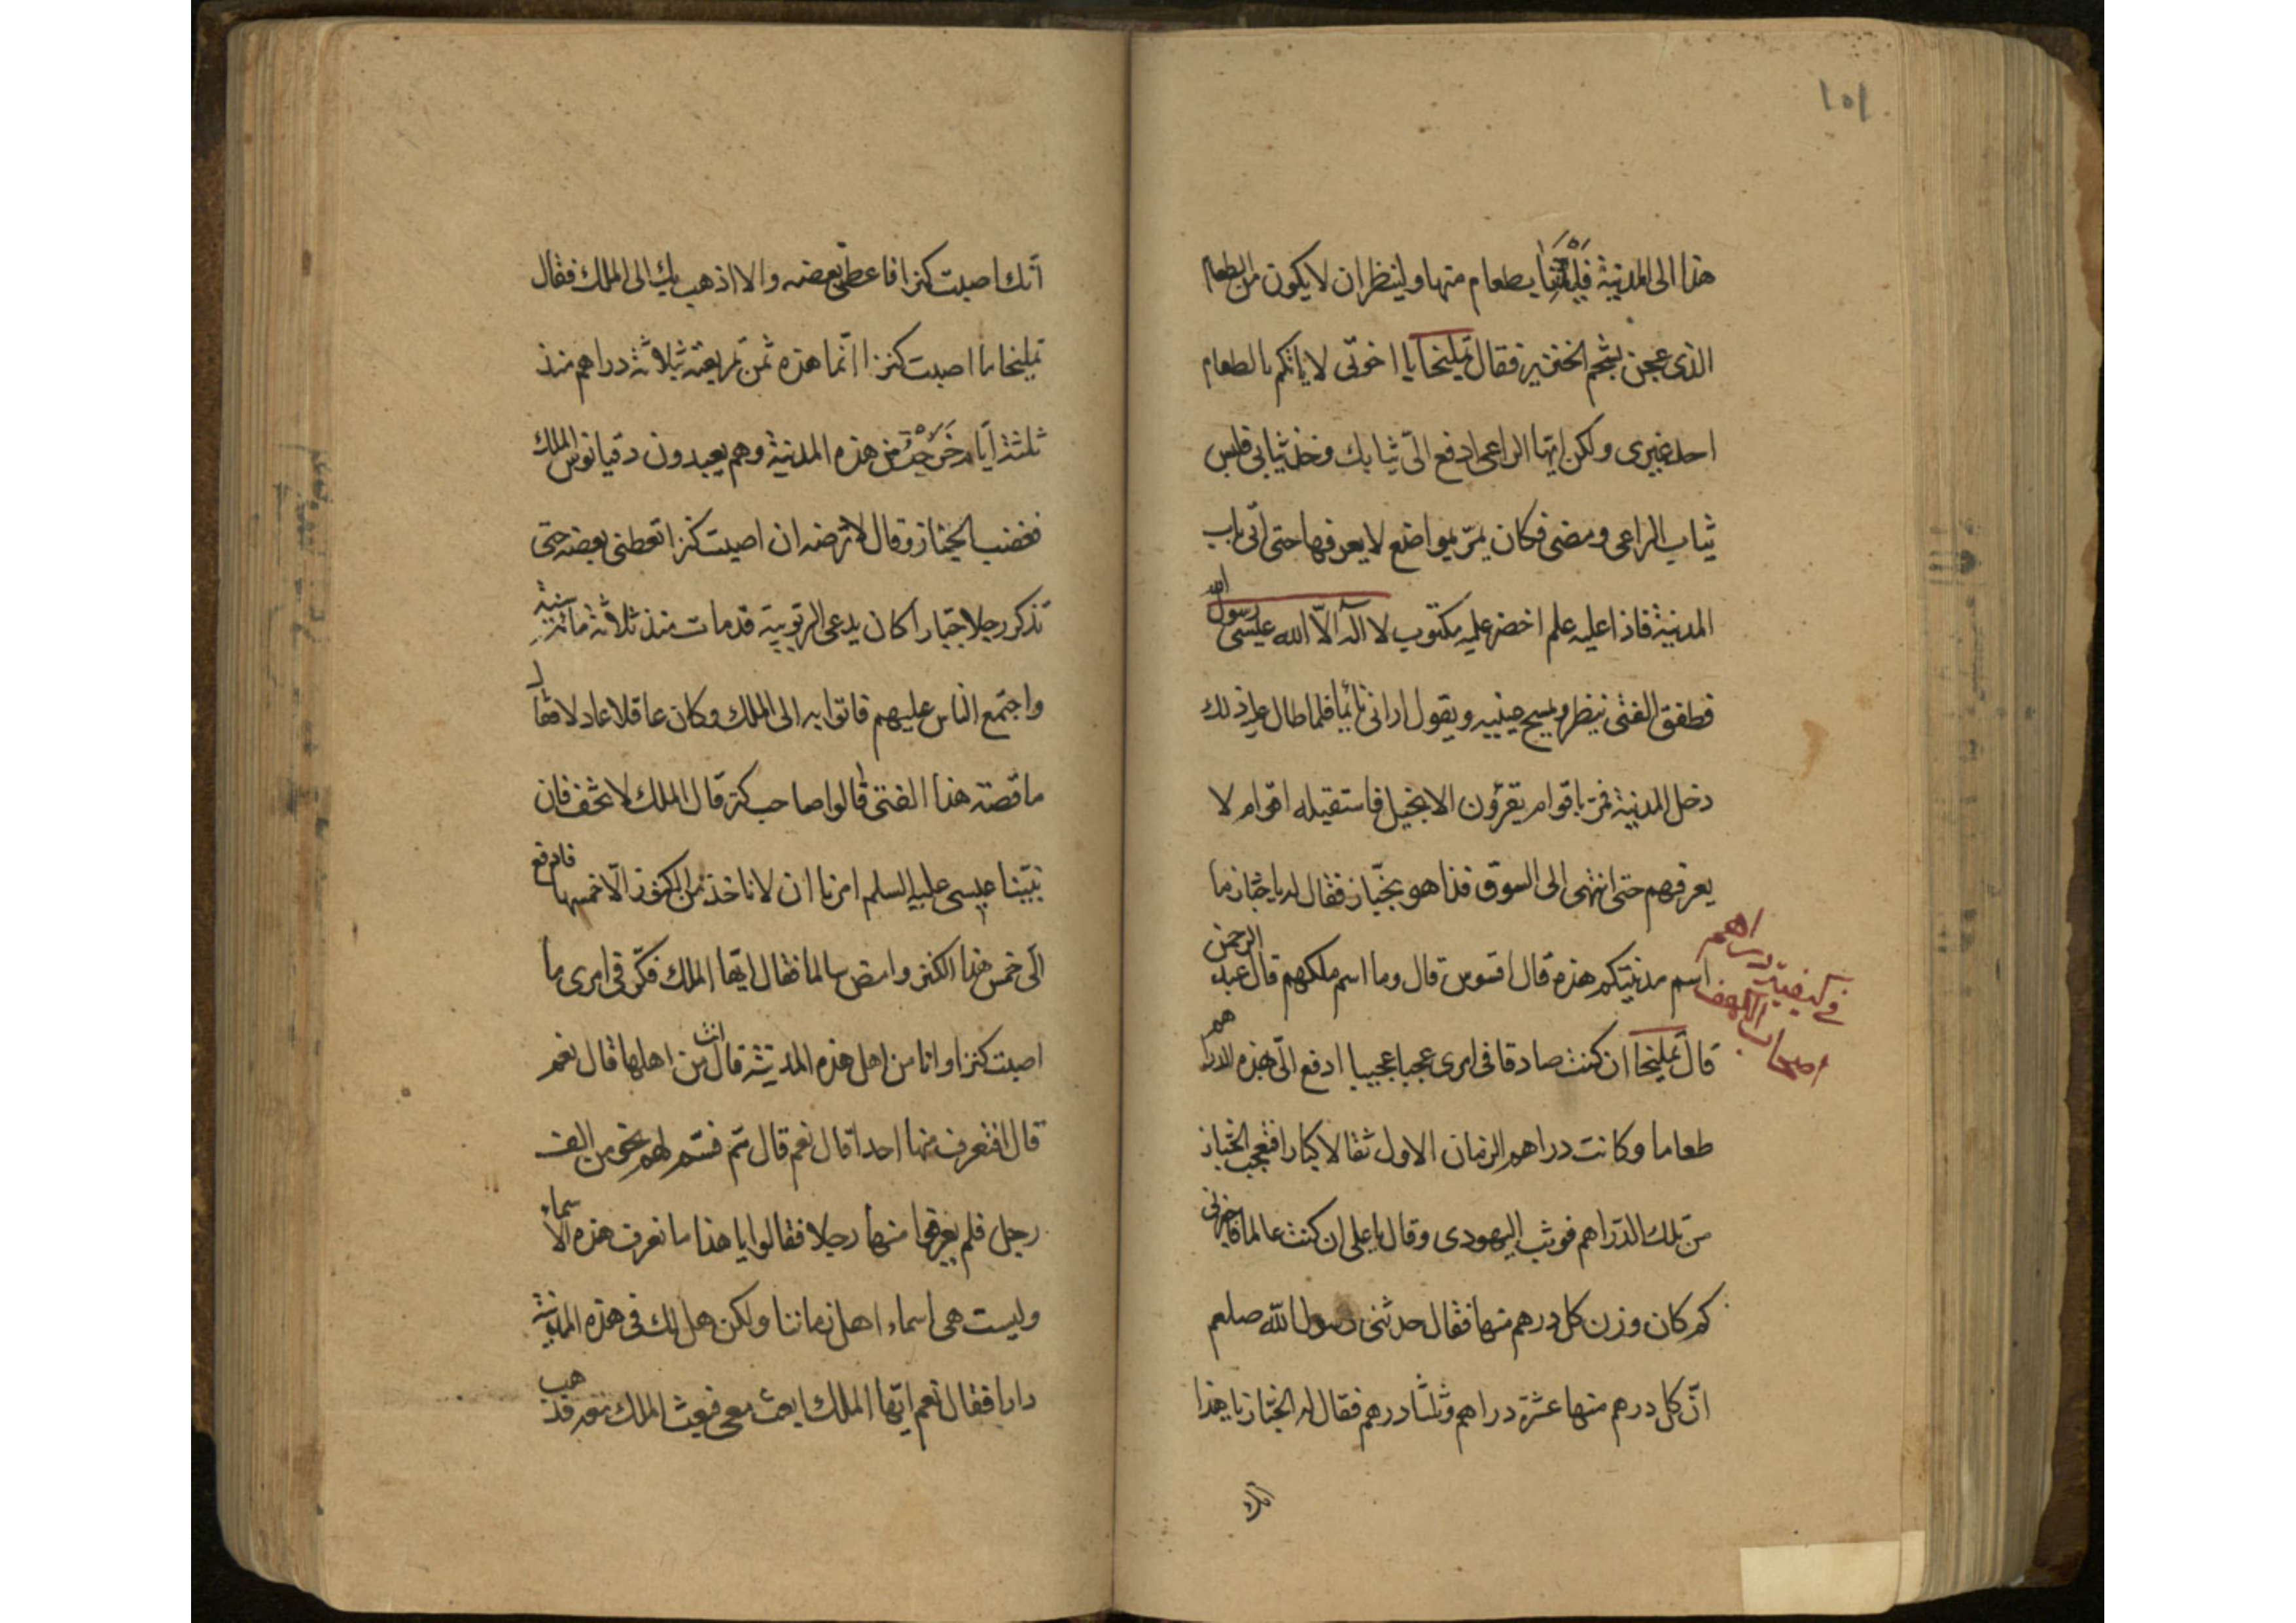 ١٥١
هذا الى المدينة فليأتنا بطعام منها ولينظر ان لا يكون من الطعام
الذى عجن بشحم الخنزير فقال تمليخا يا اخوتى لا ياتكم بالطعام
احد غيرى ولكن ايّها الراعى ادفع الىّ ثيابك وخذ ثيابى فلبس
ثياب الراعى ومضى فكان يمرّ بمواضع لا يعرفها حتى اتى باب
المدينة فاذا عليه علم اخضر عليه مكتوب لا اله الّا الله عيسى رسول الله
فطفق الفتى ينظر ويمسح عينيه ويقول ارانى نائما فلما طال عليه ذلك
دخل المدينة فمرّ باقوام يقرؤن الانجيل فاستقبله اقوام لا
يعرفهم حتى انتهى الى السوق فذا هو بخبّاز فقال له يا خبّاز ما
اسم مدينتكم هذه قال افسوس قال وما اسم ملكهم قال عبد الرحمن
فى كيفية دراهم
اصحاب الكهف
قال تمليخا ان كنت صادقا فى امرى عجبا عجيبا ادفع الىّ بهذه الدراهم
طعاما وكانت دراهم الزمان الاول ثقالا كبارا فتعجب الخباز
من تلك الدّراهم فوثب اليهودى وقال يا على ان كنت عالما فاخبرنى
كم كان وزن كل درهم منها فقال حدثنى رسول الله صلعم
انّ كل درهم منها عشرة دراهم وثلثا درهم فقال له الخبّاز يا هذا
انّك اصبت كنزا فاعطنى بعضه والا اذهب بك الى الملك فقال
تمليخا ما اصبت كنزا انّما هذه ثمن تمر بعته بثلاثة دراهم منذ
ثلثة ايّام خَرَجْتُ من هذه المدينة وهم يعبدون دقيانوس الملك
فغضب الخبّاز وقال لا ترضه ان اصبت كنزا تعطنى بعضه حتى
تذكر رجلا جبّارا كان يدعى الرّبوبيّة قد مات منذ ثلاثة مائة سنة
واجتمع النّاس عليهم فاتوا به الى الملك وكان عاقلا عادلا فقال
ما قصّة هذا الفتى قالوا صاحب كنز قال الملك لا تخف فان
نبيّنا عيسى عليه السلم امرنا ان لا ناخذ من الكنوز الّا خمسها فادفع
الىّ خمس هذا الكنز وامض سالما فقال ايّها الملك فكّر فى امرى ما
اصبت كنزا وانا من اهل هذه المدينة قال انت من اهلها قال نعم
قال افتعرف منها احدا قال نعم قال سمّ فسمّى لهم نحو من الف
رجل فلم يعرفوا منها رجلا فقالوا يا هذا ما نعرف هذه الاسماء
وليست هى اسماء اهل زماننا ولكن هل لك فى هذه المدينة
دارا فقال نعم ايّها الملك ابعث معى فبعث الملك معه فذهب